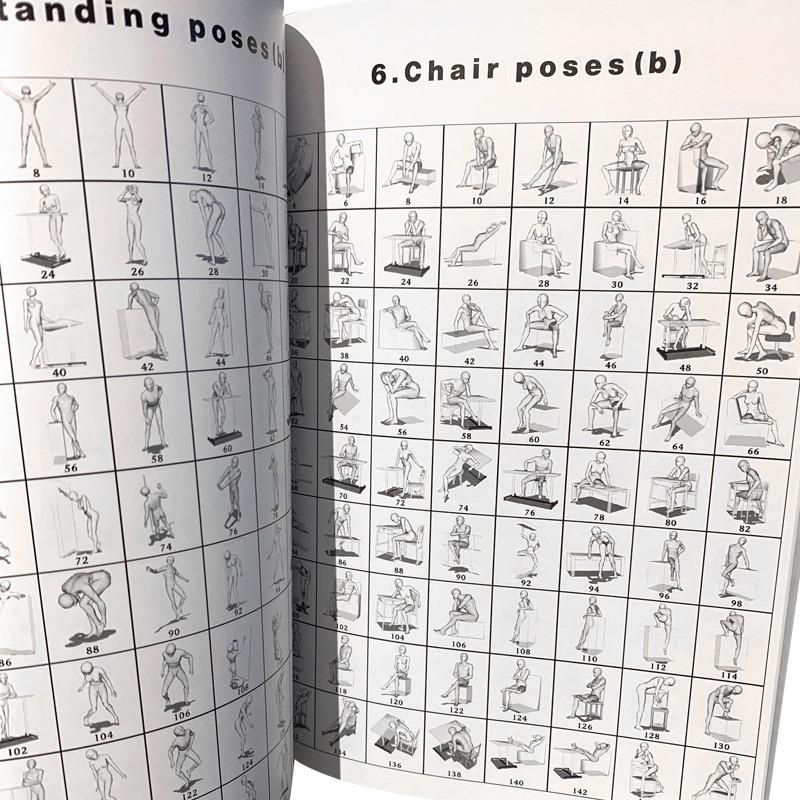 tanding poses(b)
8 10 12 14
24 26 28 30
40 42 44 46
56 58 60 62
72 74 76 78
86 88 90 92 94
102 104 106 108
122 124
6.Chair poses(b)
6 8 10 12 14 16 18
20 22 24 26 28 30 32 34
36 38 40 42 44 46 48 50
52 54 56 58 60 62 64 66
68 70 72 74 76 78 80 82
84 86 88 90 92 94 96 98
102 104 106 108 110 112 114
118 120 122 124 126 128 130
134 136 138 140 142